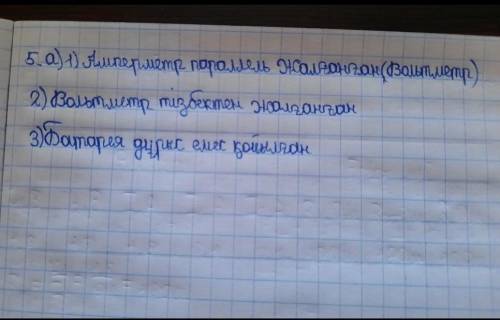 5. а) 1) Амперметр параллель жалғанған(Вольтметр)
2) Вольтметр тізбектен жалғанған
3) Батарея дұрыс емес қойылған